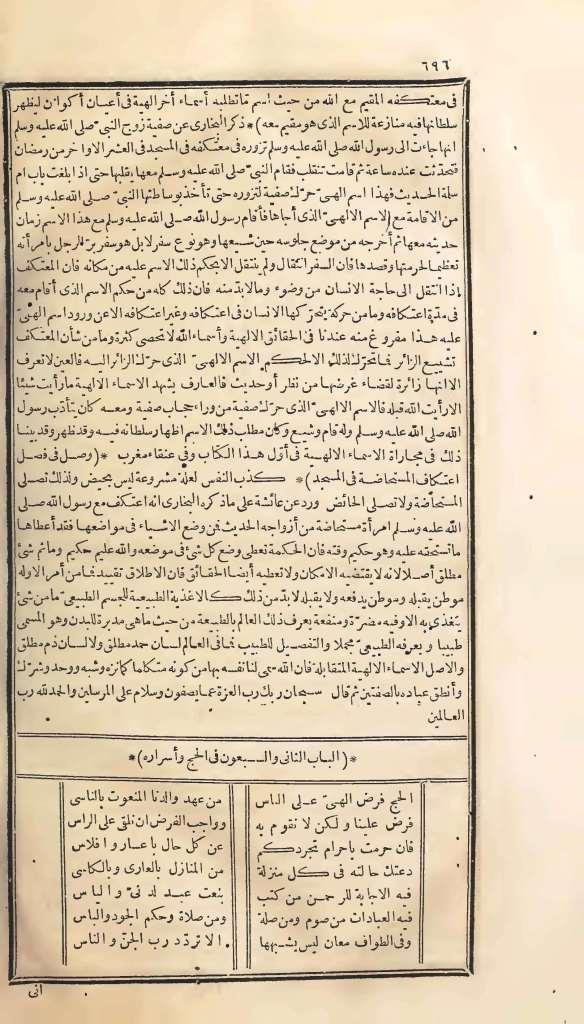 ٦٩٦
فى معتكفه المقيم مع الله من حيث اسم ما تطلبه أسماء أخر الهية فى أعيان أكوان ليظهر
سلطانها فيه منازعة للاسم الذى هو مقيم معه)* ذكر البخارى عن صفية زوج النبى صلى الله عليه وسلم
انها جاءت الى رسول الله صلى الله عليه وسلم تزوره فى معتكفه فى المسجد فى العشر الاواخر من رمضان
فتحدثت عنده ساعة ثم قامت تنقلب فقام النبى صلى الله عليه وسلم معها يقلبها حتى اذا بلغت باب أم
سلمة الحديث فهذا اسم الهى حرك صفية لتزوره حتى تأخذ بوساطتها النبى صلى الله عليه وسلم
من الاقامة مع الاسم الالهى الذى أجاءها فأقام رسول الله صلى الله عليه وسلم مع هذا الاسم زمان
حديثه معها ثم أخرجه من موضع جلوسه حين شيعها وهو نوع سفر لا بل هو سفر برّ الرجل بامرأته
تعظيما لحرمتها وقصدها فان السفر انتقال ولم ينتقل الا بحكم ذلك الاسم عليه من مكانه فان المعتكف
اذا انتقل الى حاجة الانسان من وضوء وما لابد منه فان ذلك كله من حكم الاسم الذى أقام معه
فى مدة اعتكافه وما من حركة يتحركها الانسان فى اعتكافه وغير اعتكافه الا عن ورود اسم الهى
عليه هذا مفروغ منه عندنا فى الحقائق الالهية وأسماء الله لا تحصى كثرة وما من شأن المعتكف
تشييع الزائر فما تحرك لذلك الا لحكم الاسم الالهى الذى حرك الزائر اليه فالعين لا تعرف
الا انها زائرة لقضاء غرضها من نظر أو حديث فالعارف يشهد الاسماء الالهية ما رأيت شيئا
الا رأيت الله قبله فالاسم الالهى الذى حرك صفية من وراء حجاب صفية ومعه كان يتأدب رسول
الله صلى الله عليه وسلم وله قام وشيع وكان مطلب ذلك الاسم اظهار سلطانه فيه وقد ظهر وقد بينا
ذلك فى مجاراة الاسماء الالهية فى أول هذا الكتاب وفى عنقاء مغرب *(وصل فى فصل
اعتكاف المستحاضة فى المسجد)* كذب النفس لعلة مشروعة ليس بحيض ولذلك تصلى
المستحاضة ولا تصلى الحائض ورد عن عائشة على ما ذكره البخارى انه اعتكف مع رسول الله صلى
الله عليه وسلم امرأة مستحاضة من أزواجه الحديث فمن وضع الاشياء فى مواضعها فقد أعطاها
ما تستحقه عليه وهو حكيم وقته فان الحكمة تعطى وضع كل شئ فى موضعه والله عليم حكيم وما ثم شئ
مطلق أصلا لانه لا يقتضيه الامكان ولا تعطيه أيضا الحقائق فان الاطلاق تقييد فما من أمر الا وله
موطن يقبله وموطن يدفعه ولا يقبله لابد من ذلك كالاغذية الطبيعية للجسم الطبيعى ما من شئ
يتغذى به الا وفيه مضرة ومنفعة يعرف ذلك العالم بالطبيعة من حيث ما هى مدبرة للبدن وهو المسمى
طبيبا ويعرفه الطبيعى مجملا والتفصيل للطبيب فما فى العالم لسان حمد مطلق ولا لسان ذم مطلق
والاصل الاسماء الالهية المتقابلة فان الله سمى لنا نفسه بها من كونه متكلما كما نزه وشبه ووحد وشرك
وأنطق عباده بالصفتين ثم قال سبحان ربك رب العزة عما يصفون وسلام على المرسلين والحمد لله رب
العالمين
*(الباب الثانى والسبعون فى الحج وأسراره)*
الحج فرض الهى على الناس من عهد والدنا المنعوت بالناسى
فرض علينا ولكن لا نقوم به وواجب الفرض ان نلقى على الراس
فان حرمت باحرام تجردكم عن كل حال باعسار وافلاس
دعتك حالته فى كل منزلة من المنازل بالعارى وبالكاسى
فيه الاجابة للرحمن من كثب بنعت عبد لدنى والياس
فيه العبادات من صوم ومن صلة ومن صلاة وحكم الجود والباس
وفى الطواف معان ليس يشبهها الا تردد رب الجن والناس
انى